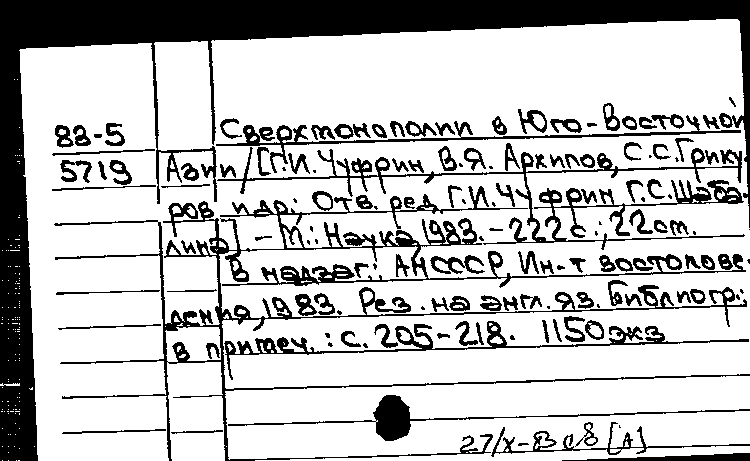 83-5 Сверхмонополии в Юго-Восточной
5719 Азии/[Г.И. Чуфрин, В.Я. Архипов, С.С. Грику-
ров и др.; Отв. ред. Г.И. Чуфрин, Г.С. Шаба-
лина]. – М.: Наука, 1983. – 222 с.; 22 см.
В надзаг.: АН СССР, Ин-т востокове-
дения, 1983. Рез. на англ. яз. Библиогр.:
в примеч.: с. 205-218. 1150 экз
27/X-83 [А]